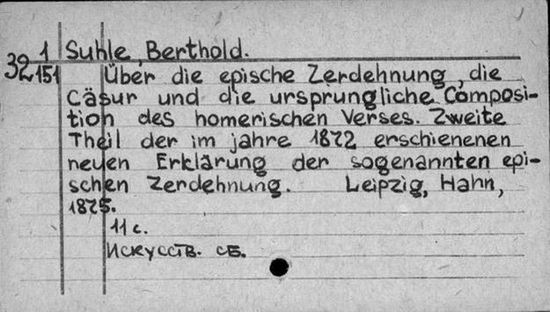 1 Suhle, Berthold.
32 151 Über die epische Zerdehnung, die
Cäsur und die ursprungliche Composi-
tion des homerischen Verses. Zweite
Theil der im jahre 1872 erschienenen
neuen Erklärung der sogenannten epi-
schen Zerdehnung. Leipzig, Hahn,
1875.
11 с.
Искусств. сб.